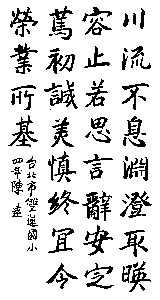 川流不息淵澄取暎
容止若思言辭安定
篤初誠美慎終宜令
榮業所基
台北市逸仙國小
四年陳孟